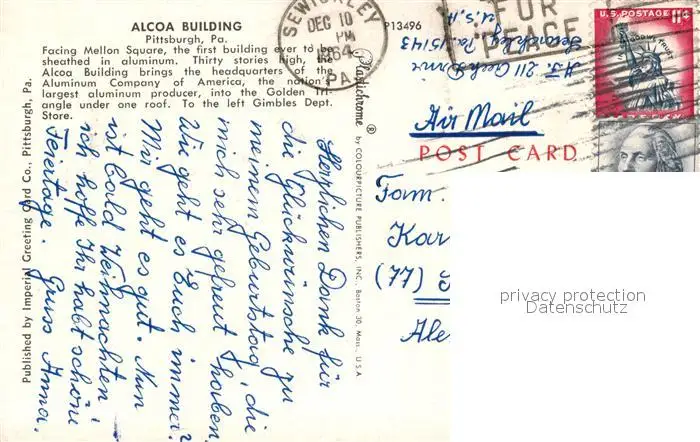 ALCOA BUILDING
Pittsburgh, Pa.
Facing Mellon Square, the first building ever to be
sheathed in aluminum. Thirty stories high, the
Alcoa Building brings the headquarters of the
Aluminum Company of America, the nation's
largest aluminum producer, into the Golden Tri-
angle under one roof. To the left Gimbles Dept.
Store.
P13496
SEWICKLEY
DEC 10
PM
1964
PA
FOR
U.S. POSTAGE 11¢
IN GOD WE TRUST
211
Sewickley Pa. 15143
U.S.A.
Air Mail
POST CARD
Herzlichen Dank für
die Glückwünsche zu
meinem Geburtstag, die
mich sehr gefreut haben.
Wie geht es Euch immer?
Mir geht es gut. Nun
ist bald Weihnachten
ich hoffe Ihr habt schöne
Feiertage. Gruss Anna.
Fam.
Kar
(77)
Ale
Plastichrome ® by COLOURPICTURE PUBLISHERS, INC., Boston 30, Mass., U.S.A.
Published by Imperial Greeting Card Co., Pittsburgh, Pa.
privacy protection
Datenschutz